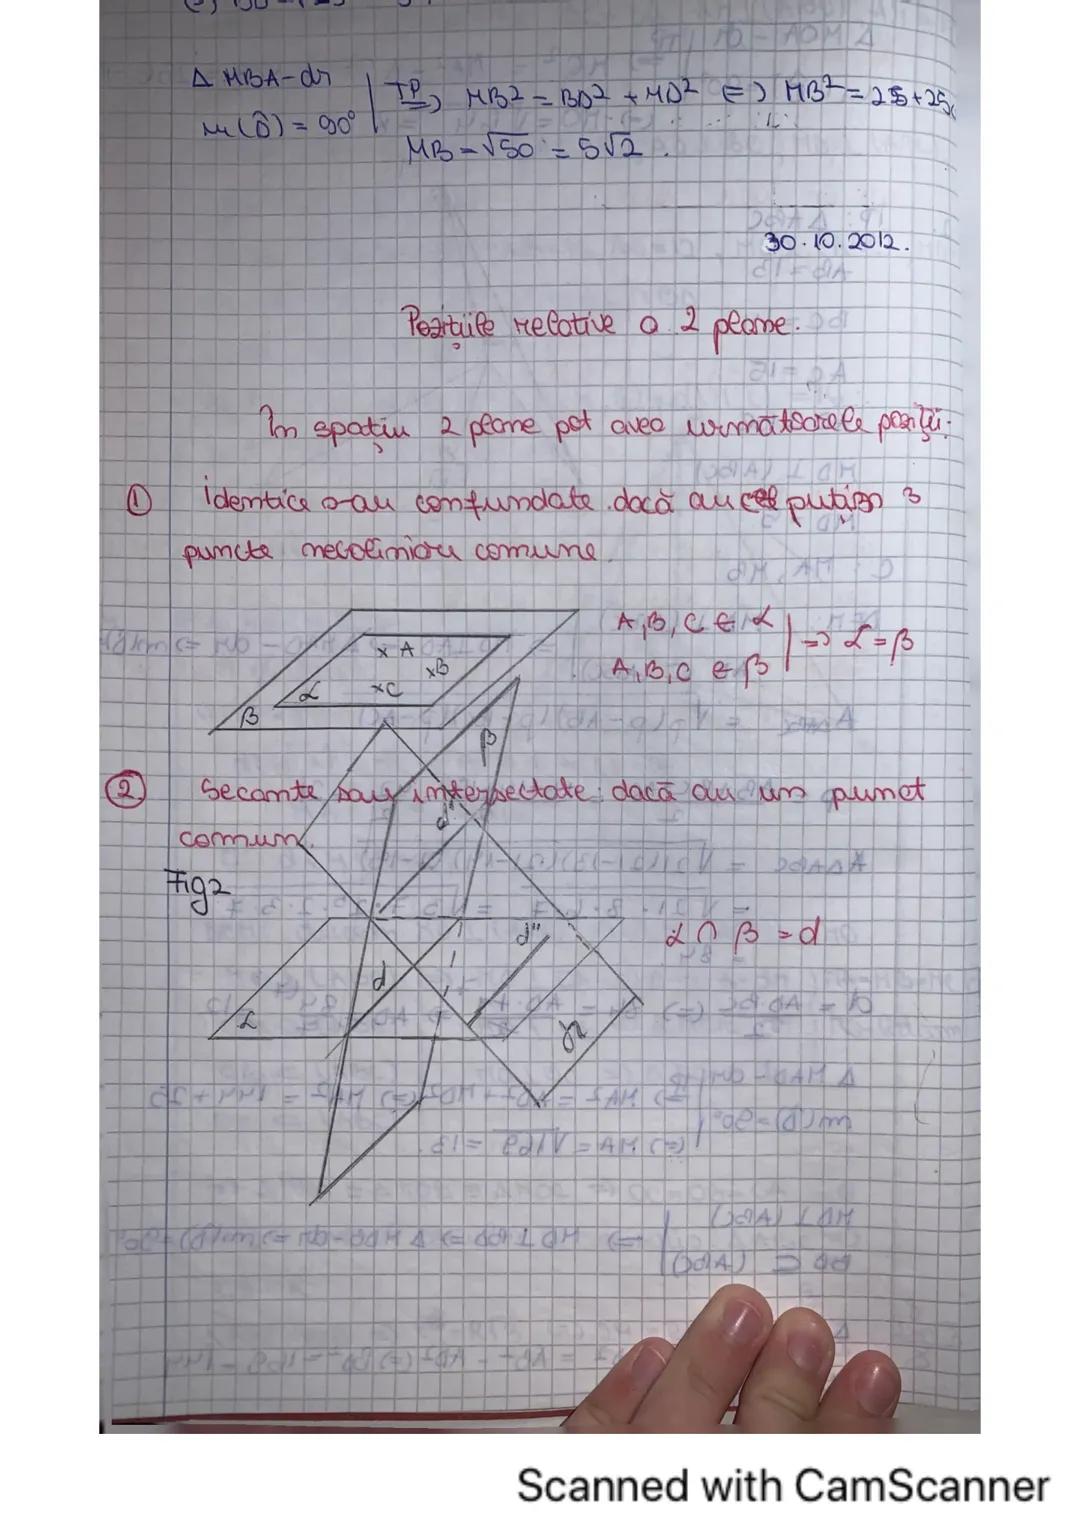 Δ MBA-dr | TP => MB² = BD² + MD² <=> MB² = 25+25
m(D̂) = 90°
MB = √50 = 5√2.
30.10.2012.
Pozițiile relative a 2 plane.
În spațiu 2 plane pot avea următoarele poziții:
① identice s-au confundate dacă au cel puțin 3
puncte necoliniare comune.
A,B,C ∈ α | => α=β
A,B,C ∈ β
x A
xB
xC
α
β
β
② Secante sau intersectate dacă au un punct
comun.
d'
Fig2
d"
α ∩ β = d
d
α
γ
Scanned with CamScanner